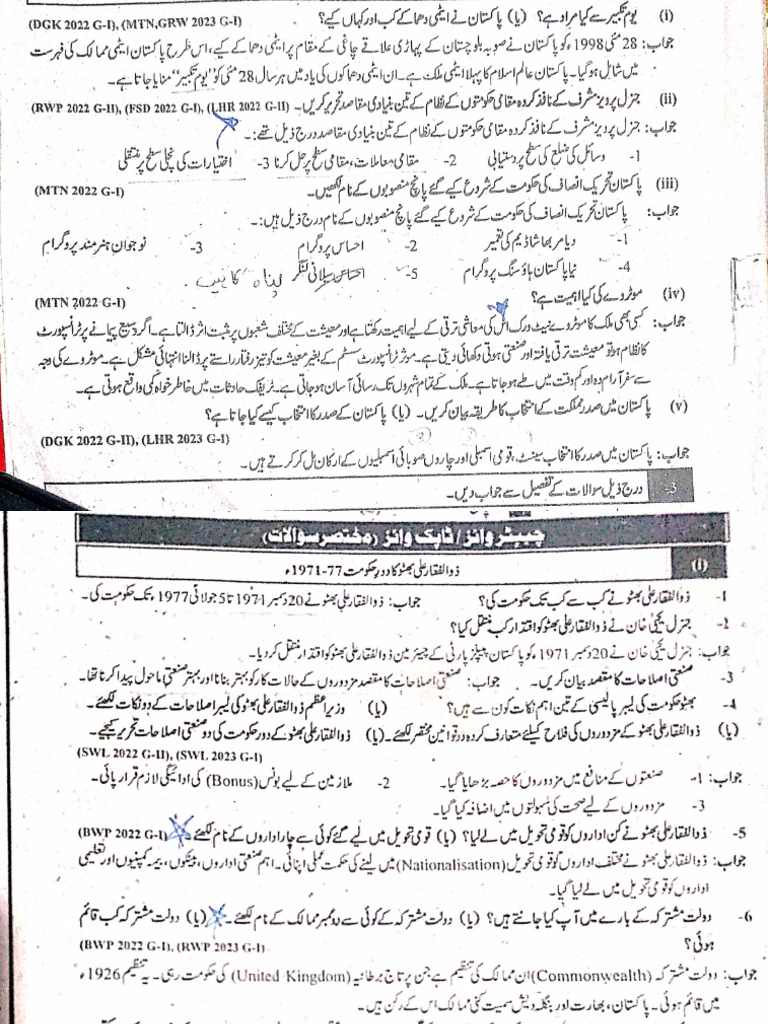 (i) یوم تکبیر سے کیا مراد ہے؟ (یا) پاکستان نے ایٹمی دھماکے کب اور کہاں کیے؟ (DGK 2022 G-I), (MTN,GRW 2023 G-I)
جواب: 28 مئی 1998ء کو پاکستان نے صوبہ بلوچستان کے پہاڑی علاقے چاغی کے مقام پر ایٹمی دھماکے کیے، اس طرح پاکستان ایٹمی ممالک کی فہرست
میں شامل ہو گیا۔ پاکستان عالم اسلام کا پہلا ایٹمی ملک ہے۔ ان ایٹمی دھماکوں کی یاد میں ہر سال 28 مئی کو "یوم تکبیر" منایا جاتا ہے۔
(ii) جنرل پرویز مشرف کے نافذ کردہ مقامی حکومتوں کے نظام کے تین بنیادی مقاصد تحریر کریں۔ (RWP 2022 G-II), (FSD 2022 G-I), (LHR 2022 G-II)
جواب: جنرل پرویز مشرف کے نافذ کردہ مقامی حکومتوں کے نظام کے تین بنیادی مقاصد درج ذیل تھے:۔
1- وسائل کی ضلع کی سطح پر دستیابی 2- مقامی معاملات، مقامی سطح پر حل کرنا 3- اختیارات کی نچلی سطح پر منتقلی
(iii) پاکستان تحریک انصاف کی حکومت کے شروع کیے گئے پانچ منصوبوں کے نام لکھیں۔ (MTN 2022 G-I)
جواب: پاکستان تحریک انصاف کی حکومت کے شروع کیے گئے پانچ منصوبوں کے نام درج ذیل ہیں:۔
1- دیامر بھاشا ڈیم کی تعمیر 2- احساس پروگرام 3- نوجوان ہنرمند پروگرام
4- نیا پاکستان ہاؤسنگ پروگرام 5- احساس سیلانی لنگر پناہ گاہیں
(iv) موٹروے کی کیا اہمیت ہے؟ (MTN 2022 G-I)
جواب: کسی بھی ملک کا موٹروے نیٹ ورک اس کی معاشی ترقی کے لیے اہمیت رکھتا ہے اور معیشت کے مختلف شعبوں پر مثبت اثر ڈالتا ہے۔ اگر وسیع پیمانے پر ٹرانسپورٹ
کا نظام ہو تو معیشت ترقی یافتہ اور صنعتی ہوتی دکھائی دیتی ہے۔ موثر ٹرانسپورٹ سسٹم کے بغیر معیشت کو تیز رفتار راستے پر ڈالنا انتہائی مشکل ہے۔ موٹروے کی وجہ
سے سفر آرام دہ اور کم وقت میں طے ہو جاتا ہے۔ ملک کے تمام شہروں تک رسائی آسان ہو جاتی ہے۔ ٹریفک حادثات میں خاطر خواہ کمی واقع ہوتی ہے۔
(v) پاکستان میں صدر مملکت کے انتخاب کا طریقہ بیان کریں۔ (یا) پاکستان کے صدر کا انتخاب کیسے کیا جاتا ہے؟
(DGK 2022 G-II), (LHR 2023 G-I)
جواب: پاکستان میں صدر کا انتخاب سینٹ، قومی اسمبلی اور چاروں صوبائی اسمبلیوں کے ارکان مل کر کرتے ہیں۔
3- درج ذیل سوالات کے تفصیل سے جواب دیں۔
چیپٹر وائز / ٹاپک وائز (مختصر سوالات)
(i) ذوالفقار علی بھٹو کا دور حکومت 77-1971ء
1- ذوالفقار علی بھٹو نے کب سے کب تک حکومت کی؟ جواب: ذوالفقار علی بھٹو نے 20 دسمبر 1971 تا 5 جولائی 1977ء تک حکومت کی۔
2- جنرل یحییٰ خان نے ذوالفقار علی بھٹو کو اقتدار کب منتقل کیا؟
جواب: جنرل یحییٰ خان نے 20 دسمبر 1971ء کو پاکستان پیپلز پارٹی کے چیئرمین ذوالفقار علی بھٹو کو اقتدار منتقل کر دیا۔
3- صنعتی اصلاحات کا مقصد بیان کریں۔ جواب: صنعتی اصلاحات کا مقصد مزدوروں کے حالات کار کو بہتر بنانا اور بہتر صنعتی ماحول پیدا کرنا تھا۔
4- بھٹو حکومت کی لیبر پالیسی کے تین اہم نکات کون سے ہیں؟ (یا) وزیراعظم ذوالفقار علی بھٹو کی لیبر اصلاحات کے دو نکات لکھئے۔
(یا) ذوالفقار علی بھٹو کے مزدوروں کی فلاح کیلئے متعارف کردہ دو قوانین مختصر لکھئے۔ (یا) ذوالفقار علی بھٹو کے دور حکومت کی دو صنعتی اصلاحات تحریر کیجیے۔
(SWL 2022 G-II), (SWL 2023 G-I)
جواب: 1- صنعتوں کے منافع میں مزدوروں کا حصہ بڑھایا گیا۔ 2- ملازمین کے لیے بونس (Bonus) کی ادائیگی لازم قرار پائی۔
3- مزدوروں کے لیے صحت کی سہولتوں میں اضافہ کیا گیا۔
5- ذوالفقار علی بھٹو نے کن اداروں کو قومی تحویل میں لے لیا؟ (یا) قومی تحویل میں لیے گئے کوئی سے چار اداروں کے نام لکھئے۔ (BWP 2022 G-I)
جواب: ذوالفقار علی بھٹو نے مختلف اداروں کو قومی تحویل (Nationalisation) میں لینے کی حکمت عملی اپنائی۔ اہم صنعتی اداروں، بینکوں، بیمہ کمپنیوں اور تعلیمی
اداروں کو قومی تحویل میں لے لیا گیا۔
6- دولت مشترکہ کے بارے میں آپ کیا جانتے ہیں؟ (یا) دولت مشترکہ کے کوئی سے دو ممبر ممالک کے نام لکھئے۔ (یا) دولت مشترکہ کب قائم
ہوئی؟ (BWP 2022 G-I), (RWP 2023 G-I)
جواب: دولت مشترکہ (Commonwealth) ان ممالک کی تنظیم ہے جن پر تاج برطانیہ (United Kingdom) کی حکومت رہی۔ یہ تنظیم 1926ء
میں قائم ہوئی۔ پاکستان، بھارت اور بنگلہ دیش سمیت کئی ممالک اس کے رکن ہیں۔